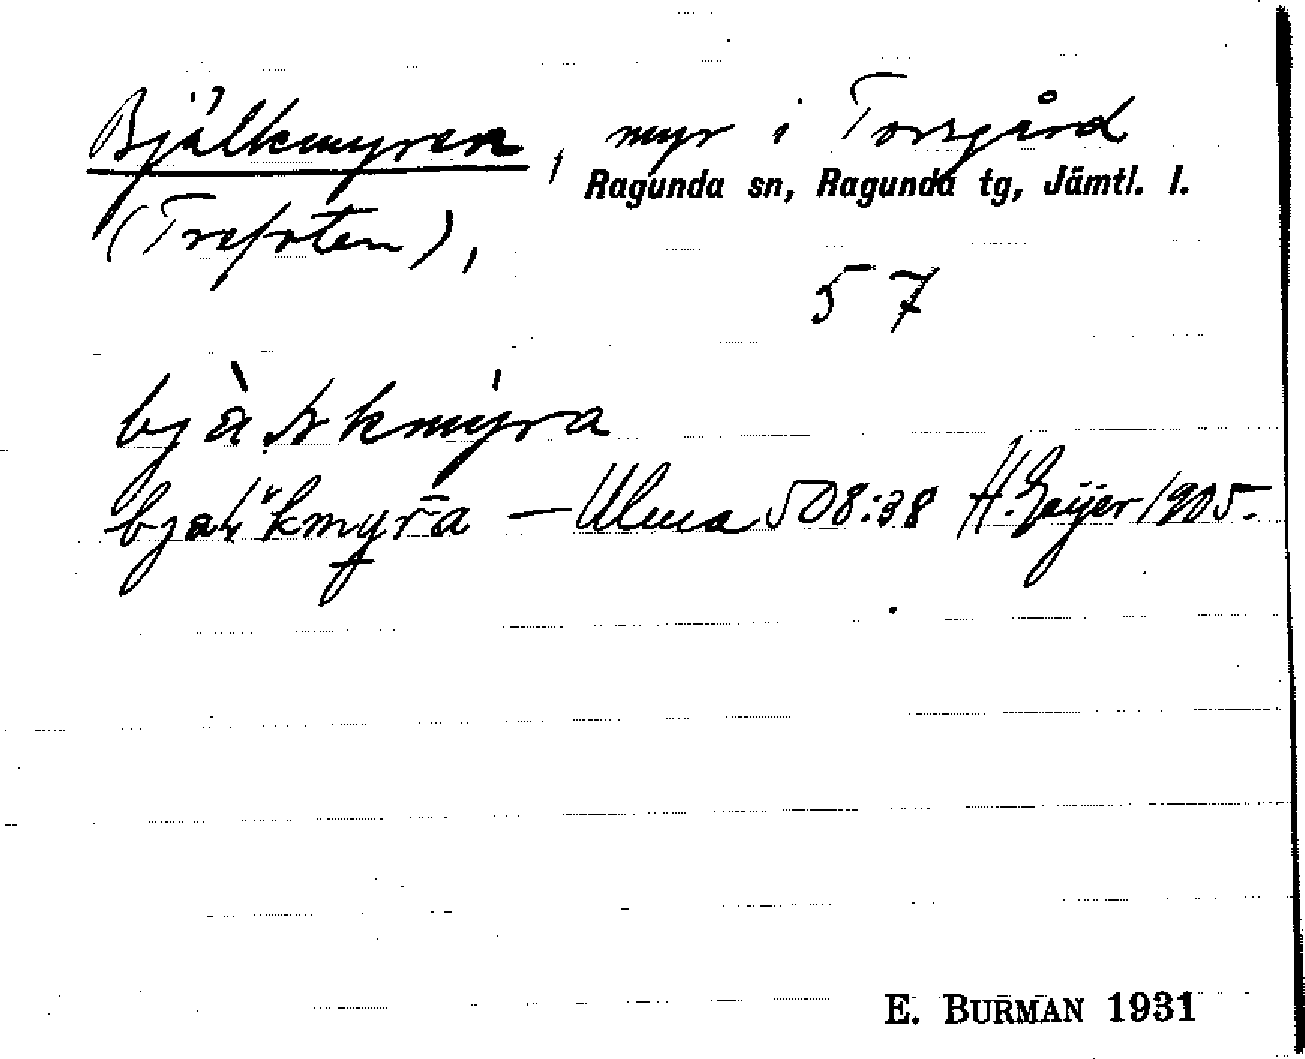 Bjälkmyren, myr i Torsgård
Ragunda sn, Ragunda tg, Jämtl. l.
(Trefoten),
57
bjàlkmyra
bjalkmyra — Ulma 508:38 H. Geijer 1905.
E. BURMAN 1931